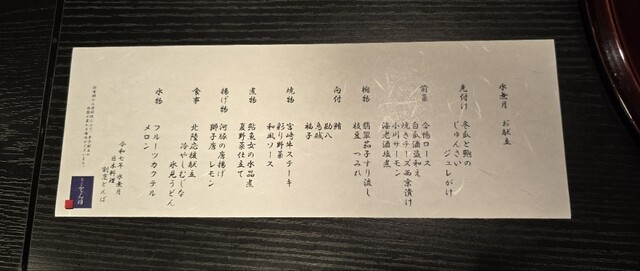 水無月　お献立
先付け
冬瓜と鮑の
じゅんさい
ジュレがけ
前菜
合鴨ロース
白瓜酒盗和え
焼きチーズ西京漬け
小川サーモン
海老酒塩煮
椀物
翡翠茄子すり流し
枝豆つみれ
向付
鮪
勘八
鳥賊
福子
焼物
宮崎牛ステーキ
彩り野菜
和風ソース
煮物
鮎魚女の水晶煮
夏野菜仕立て
揚げ物
河豚の唐揚げ
獅子唐　レモン
食事
北陸応援献立
冷やしむじな
氷見うどん
水物
フルーツカクテル
メロン
令和七年　水無月
日本料理
割烹とんぼ